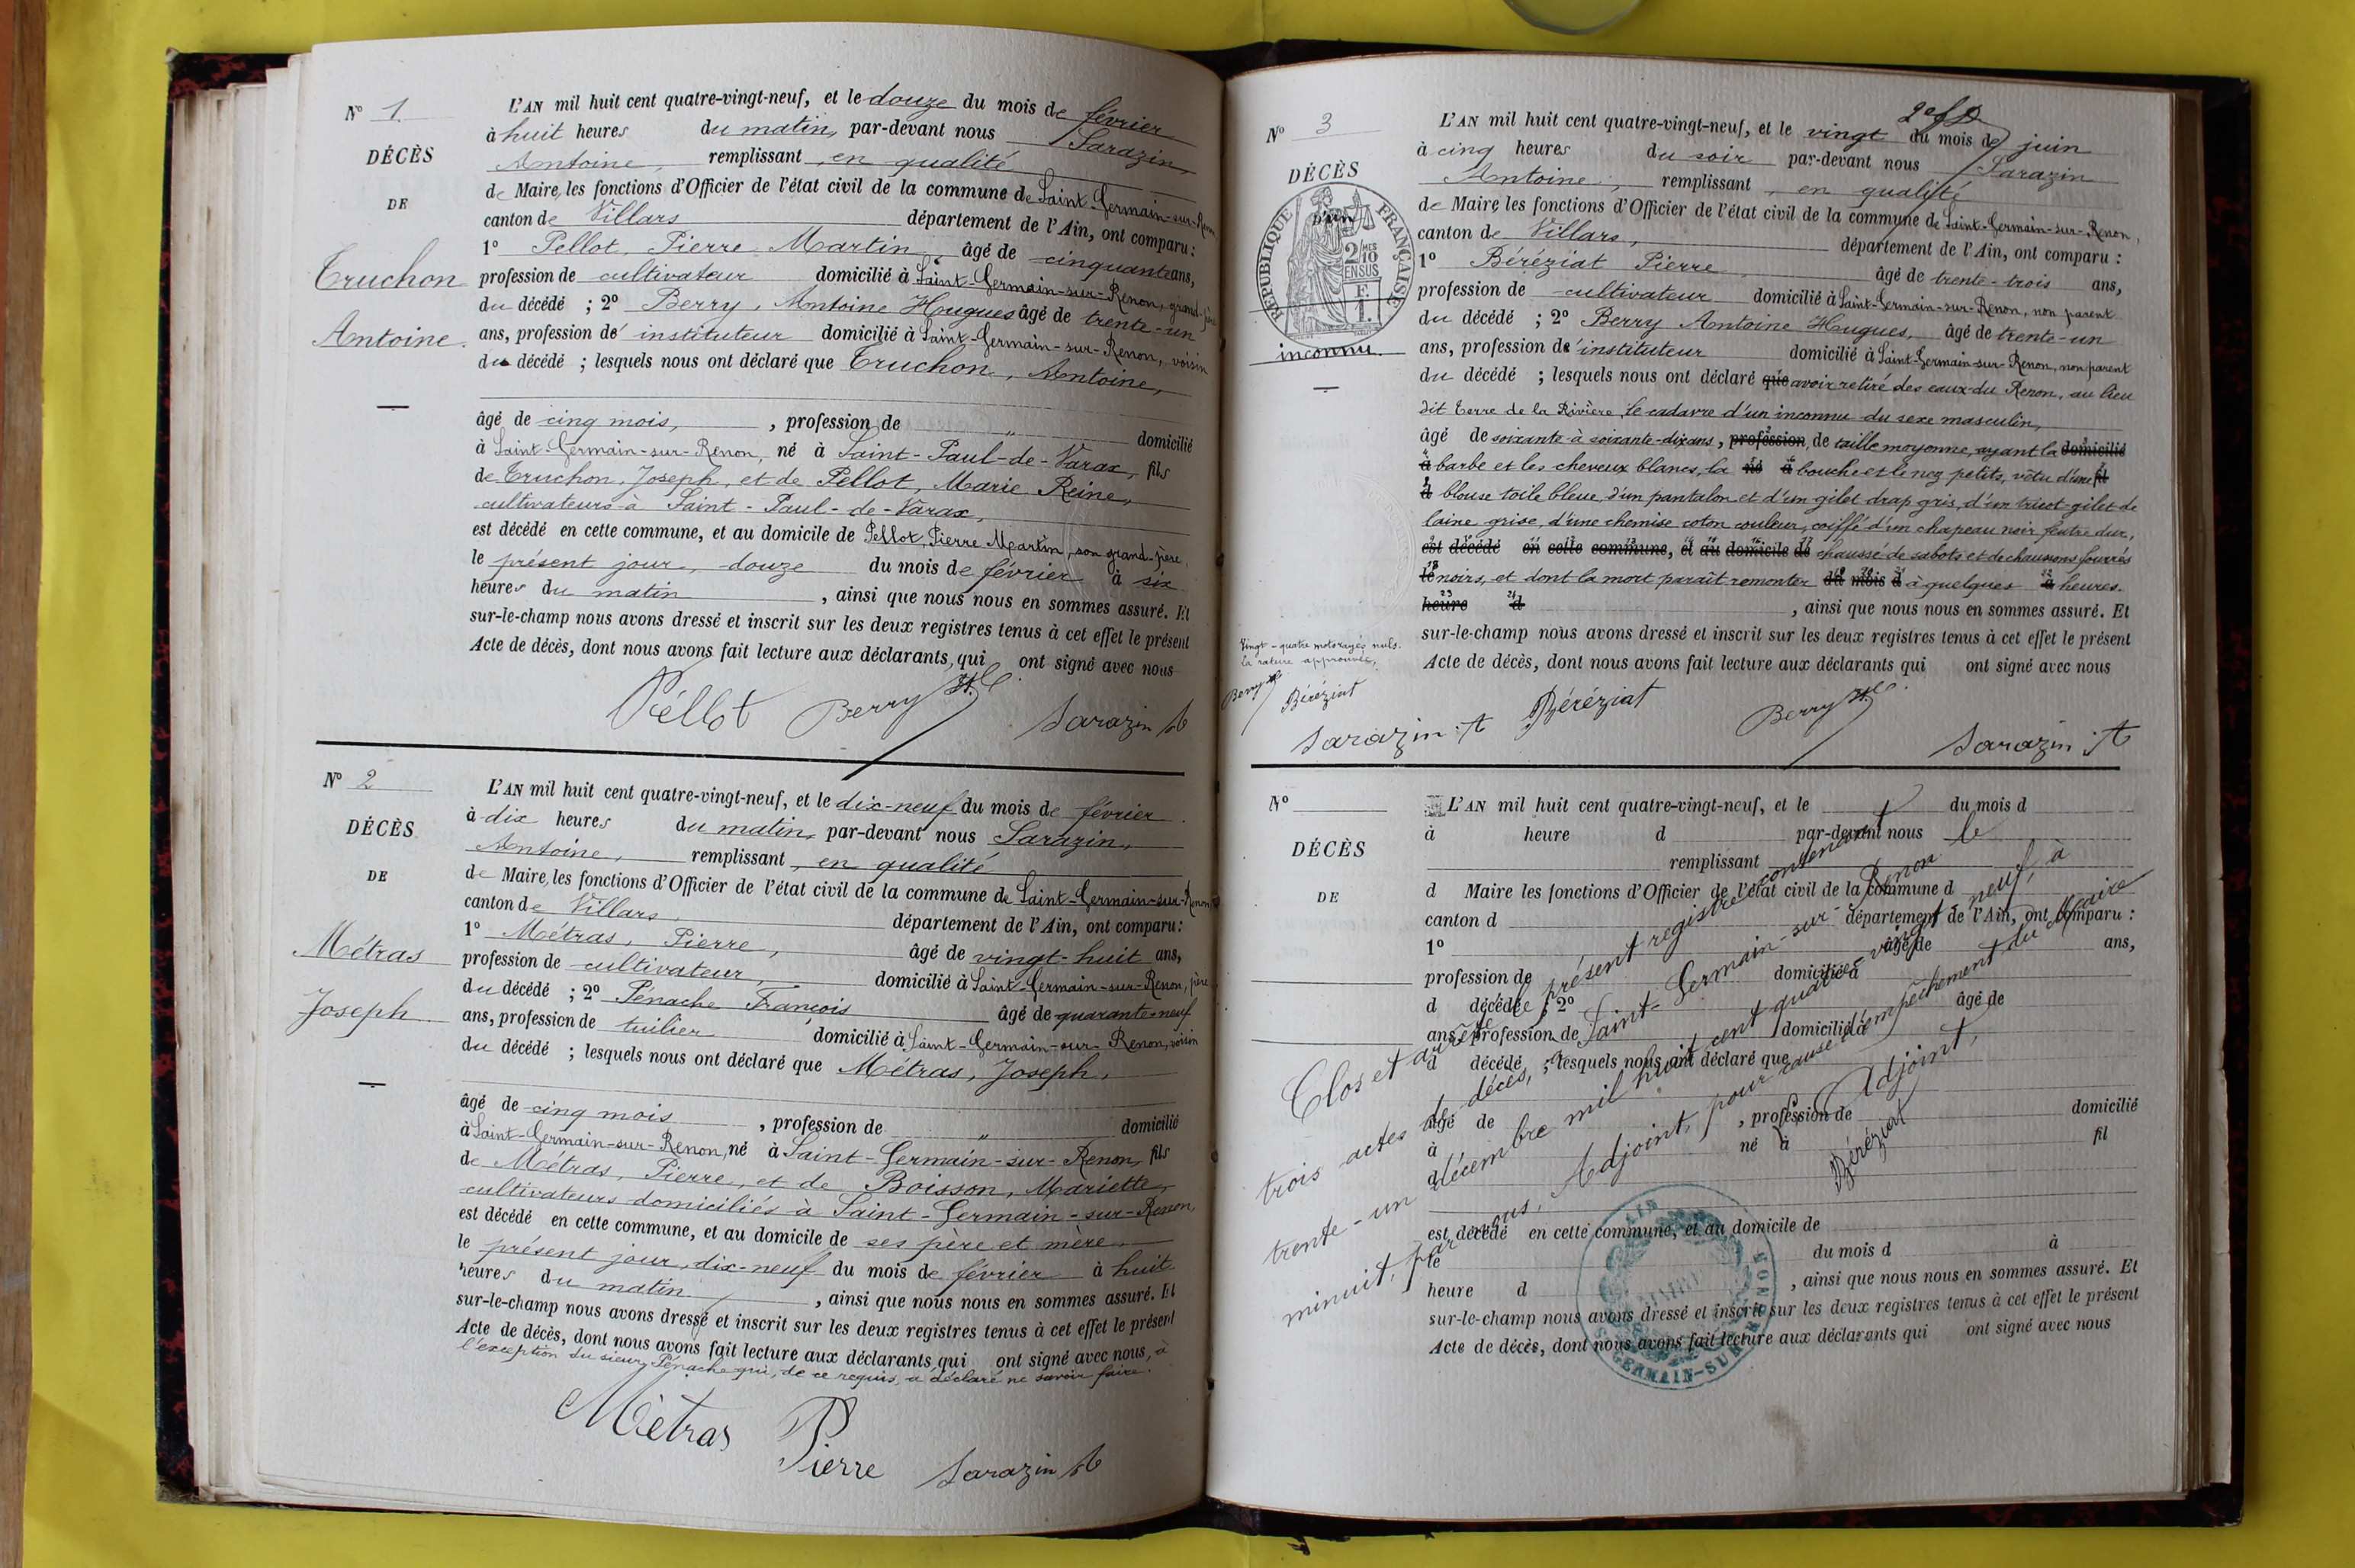 N° 1.
DÉCÈS
DE
Truchon
Antoine.
L'AN mil huit cent quatre-vingt-neuf, et le douze du mois de février
à huit heures du matin, par-devant nous Sarazin,
Antoine, remplissant, en qualité
de Maire, les fonctions d'Officier de l'état civil de la commune de Saint-Germain-sur-Renon
canton de Villars département de l'Ain, ont comparu :
1° Pellot, Pierre Martin, âgé de cinquante ans,
profession de cultivateur domicilié à Saint-Germain-sur-Renon, grand-père
du décédé ; 2° Berry, Antoine Hugues âgé de trente-un
ans, profession d'instituteur domicilié à Saint-Germain-sur-Renon, voisin
du décédé ; lesquels nous ont déclaré que Truchon, Antoine,
âgé de cinq mois, , profession de „ domicilié
à Saint-Germain-sur-Renon, né à Saint-Paul-de-Varax, fils
de Truchon, Joseph, et de Pellot, Marie Reine,
cultivateurs à Saint-Paul-de-Varax,
est décédé en cette commune, et au domicile de Pellot, Pierre Martin, son grand-père,
le présent jour, douze du mois de février à six
heures du matin , ainsi que nous nous en sommes assuré. Et
sur-le-champ nous avons dressé et inscrit sur les deux registres tenus à cet effet le présent
Acte de décès, dont nous avons fait lecture aux déclarants, qui ont signé avec nous
Péllot Berry Sarazin A
N° 2
DÉCÈS
DE
Métras
Joseph
L'AN mil huit cent quatre-vingt-neuf, et le dix-neuf du mois de février
à dix heures du matin, par-devant nous Sarazin,
Antoine, remplissant, en qualité
de Maire, les fonctions d'Officier de l'état civil de la commune de Saint-Germain-sur-Renon,
canton de Villars département de l'Ain, ont comparu :
1° Métras, Pierre, âgé de vingt-huit ans,
profession de cultivateur, domicilié à Saint-Germain-sur-Renon, père
du décédé ; 2° Pénache François âgé de quarante-neuf
ans, profession de tuilier domicilié à Saint-Germain-sur-Renon, voisin
du décédé ; lesquels nous ont déclaré que Métras, Joseph,
âgé de cinq mois , profession de „ domicilié
à Saint-Germain-sur-Renon, né à Saint-Germain-sur-Renon, fils
de Métras, Pierre, et de Boisson, Mariette,
cultivateurs domiciliés à Saint-Germain-sur-Renon,
est décédé en cette commune, et au domicile de ses père et mère
le présent jour, dix-neuf du mois de février à huit
heures du matin , ainsi que nous nous en sommes assuré. Et
sur-le-champ nous avons dressé et inscrit sur les deux registres tenus à cet effet le présent
Acte de décès, dont nous avons fait lecture aux déclarants, qui ont signé avec nous, à
l'exception du sieur Pénache qui, de ce requis, a déclaré ne savoir faire.
Métras Pierre Sarazin A
N° 3
DÉCÈS
RÉPUBLIQUE FRANÇAISE
2/10 MES EN SUS
F. 1.
D'un
inconnu.
L'AN mil huit cent quatre-vingt-neuf, et le vingt du mois de juin
à cinq heures du soir par-devant nous Sarazin
Antoine, remplissant, en qualité
de Maire, les fonctions d'Officier de l'état civil de la commune de Saint-Germain-sur-Renon,
canton de Villars, département de l'Ain, ont comparu :
1° Béréziat Pierre âgé de trente-trois ans,
profession de cultivateur domicilié à Saint-Germain-sur-Renon, non parent
du décédé ; 2° Berry Antoine Hugues, âgé de trente-un
ans, profession d'instituteur domicilié à Saint-Germain-sur-Renon, non parent
du décédé ; lesquels nous ont déclaré que avoir retiré des eaux du Renon, au lieu
dit Terre de la Rivière, le cadavre d'un inconnu du sexe masculin,
âgé de soixante à soixante-dix ans, profession de taille moyenne, ayant la domicilié
à barbe et les cheveux blancs, la né à bouche et le nez petits, vêtu d'une fil
d blouse toile bleue, d'un pantalon et d'un gilet drap gris, d'un tricot-gilet de
laine grise, d'une chemise coton couleur, coiffé d'un chapeau noir feutre dur,
est décédé en cette commune, et au domicile de chaussé de sabots et de chaussons fourrés
le noirs, et dont la mort paraît remonter du mois d à quelques à heures.
heure d , ainsi que nous nous en sommes assuré. Et
sur-le-champ nous avons dressé et inscrit sur les deux registres tenus à cet effet le présent
Acte de décès, dont nous avons fait lecture aux déclarants qui ont signé avec nous
Vingt-quatre mots rayés nuls.
la rature approuvée,
Berry Béréziat
Sarazin : A Béréziat Berry Sarazin : A
N°
DÉCÈS
DE
L'AN mil huit cent quatre-vingt-neuf, et le du mois d
à heure d par-devant nous
remplissant
d Maire les fonctions d'Officier de l'état civil de la commune d
canton d département de l'Ain, ont comparu :
1° âgé de ans,
profession de domicilié à
d décédé ; 2° âgé de
ans, profession de domicilié à
d décédé ; lesquels nous ont déclaré que
âgé de , profession de domicilié
à né à fil
d
est décédé en cette commune, et au domicile de
le du mois d à
heure d , ainsi que nous nous en sommes assuré. Et
sur-le-champ nous avons dressé et inscrit sur les deux registres tenus à cet effet le présent
Acte de décès, dont nous avons fait lecture aux déclarants qui ont signé avec nous
Clos et arrêté le présent registre contenant
trois actes de décès, à Saint-Germain-sur-Renon le
trente-un décembre mil huit cent quatre-vingt-neuf, à
minuit, par nous, Adjoint, pour cause d'empêchement du Maire
L'Adjoint,
Béréziat
GERMAIN-SUR-RENON